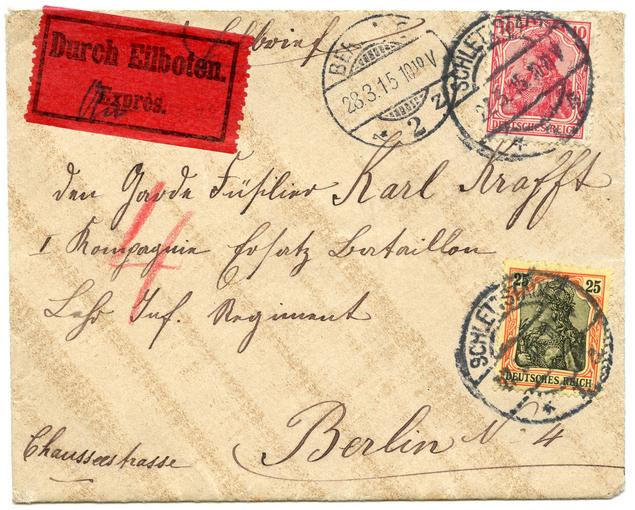 Durch Eilboten.
Exprès.
Eilbrief
28.3.15.10-12V
* 2 z
SCHLETTSTADT
10
DEUTSCHES REICH
den Garde Füsilier Karl Krafft
I Kompagnie Ersatz Bataillon
Lehr Inf. Regiment
4
25 25
DEUTSCHES REICH
Chausseestrasse
Berlin N. 4